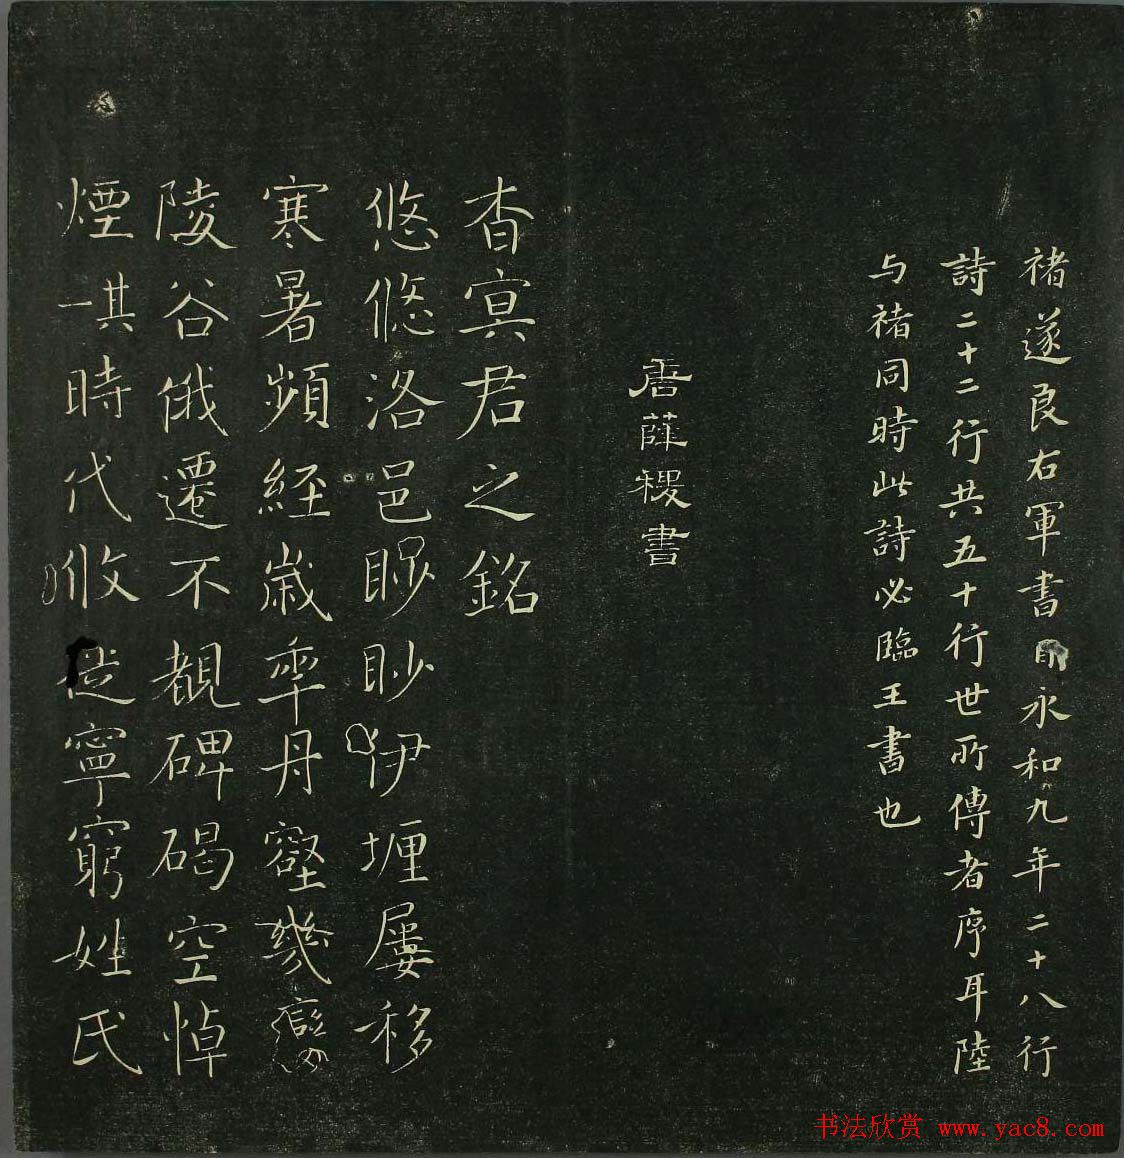 褚遂良右軍書目永和九年二十八行
詩二十二行共五十行世所傳者序耳陸
与褚同時此詩必臨王書也
唐薛稷書
杳㝠君之銘
悠悠洛邑眇眇伊壥屢移
寒暑頻經歲年丹壑幾
陵谷俄遷不覩碑碣空悼
煙時代攸徙寧窮姓氏
书法欣赏 www.yac8.com